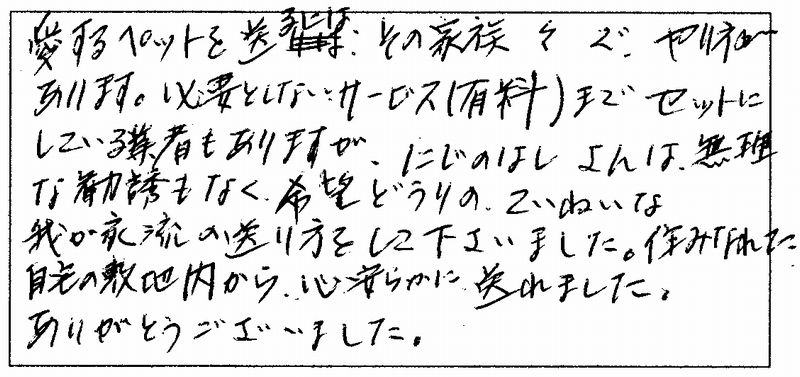 愛するペットを送るには、その家族 々 で、やり方が
あります。必要としないサービス(有料)までセットに
している業者もありますが、にじのはし さんは、無理
な勧誘もなく、希望どうりの、ていねいな
我が家流の送り方をして下さいました。住みなれた
自宅の敷地内から、心安らかに送れました。
ありがとうございました。